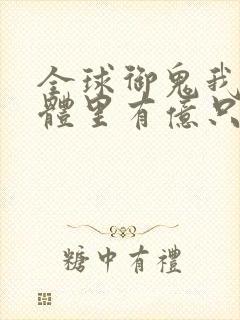 全球御鬼我
體里有億只
糖中有禮